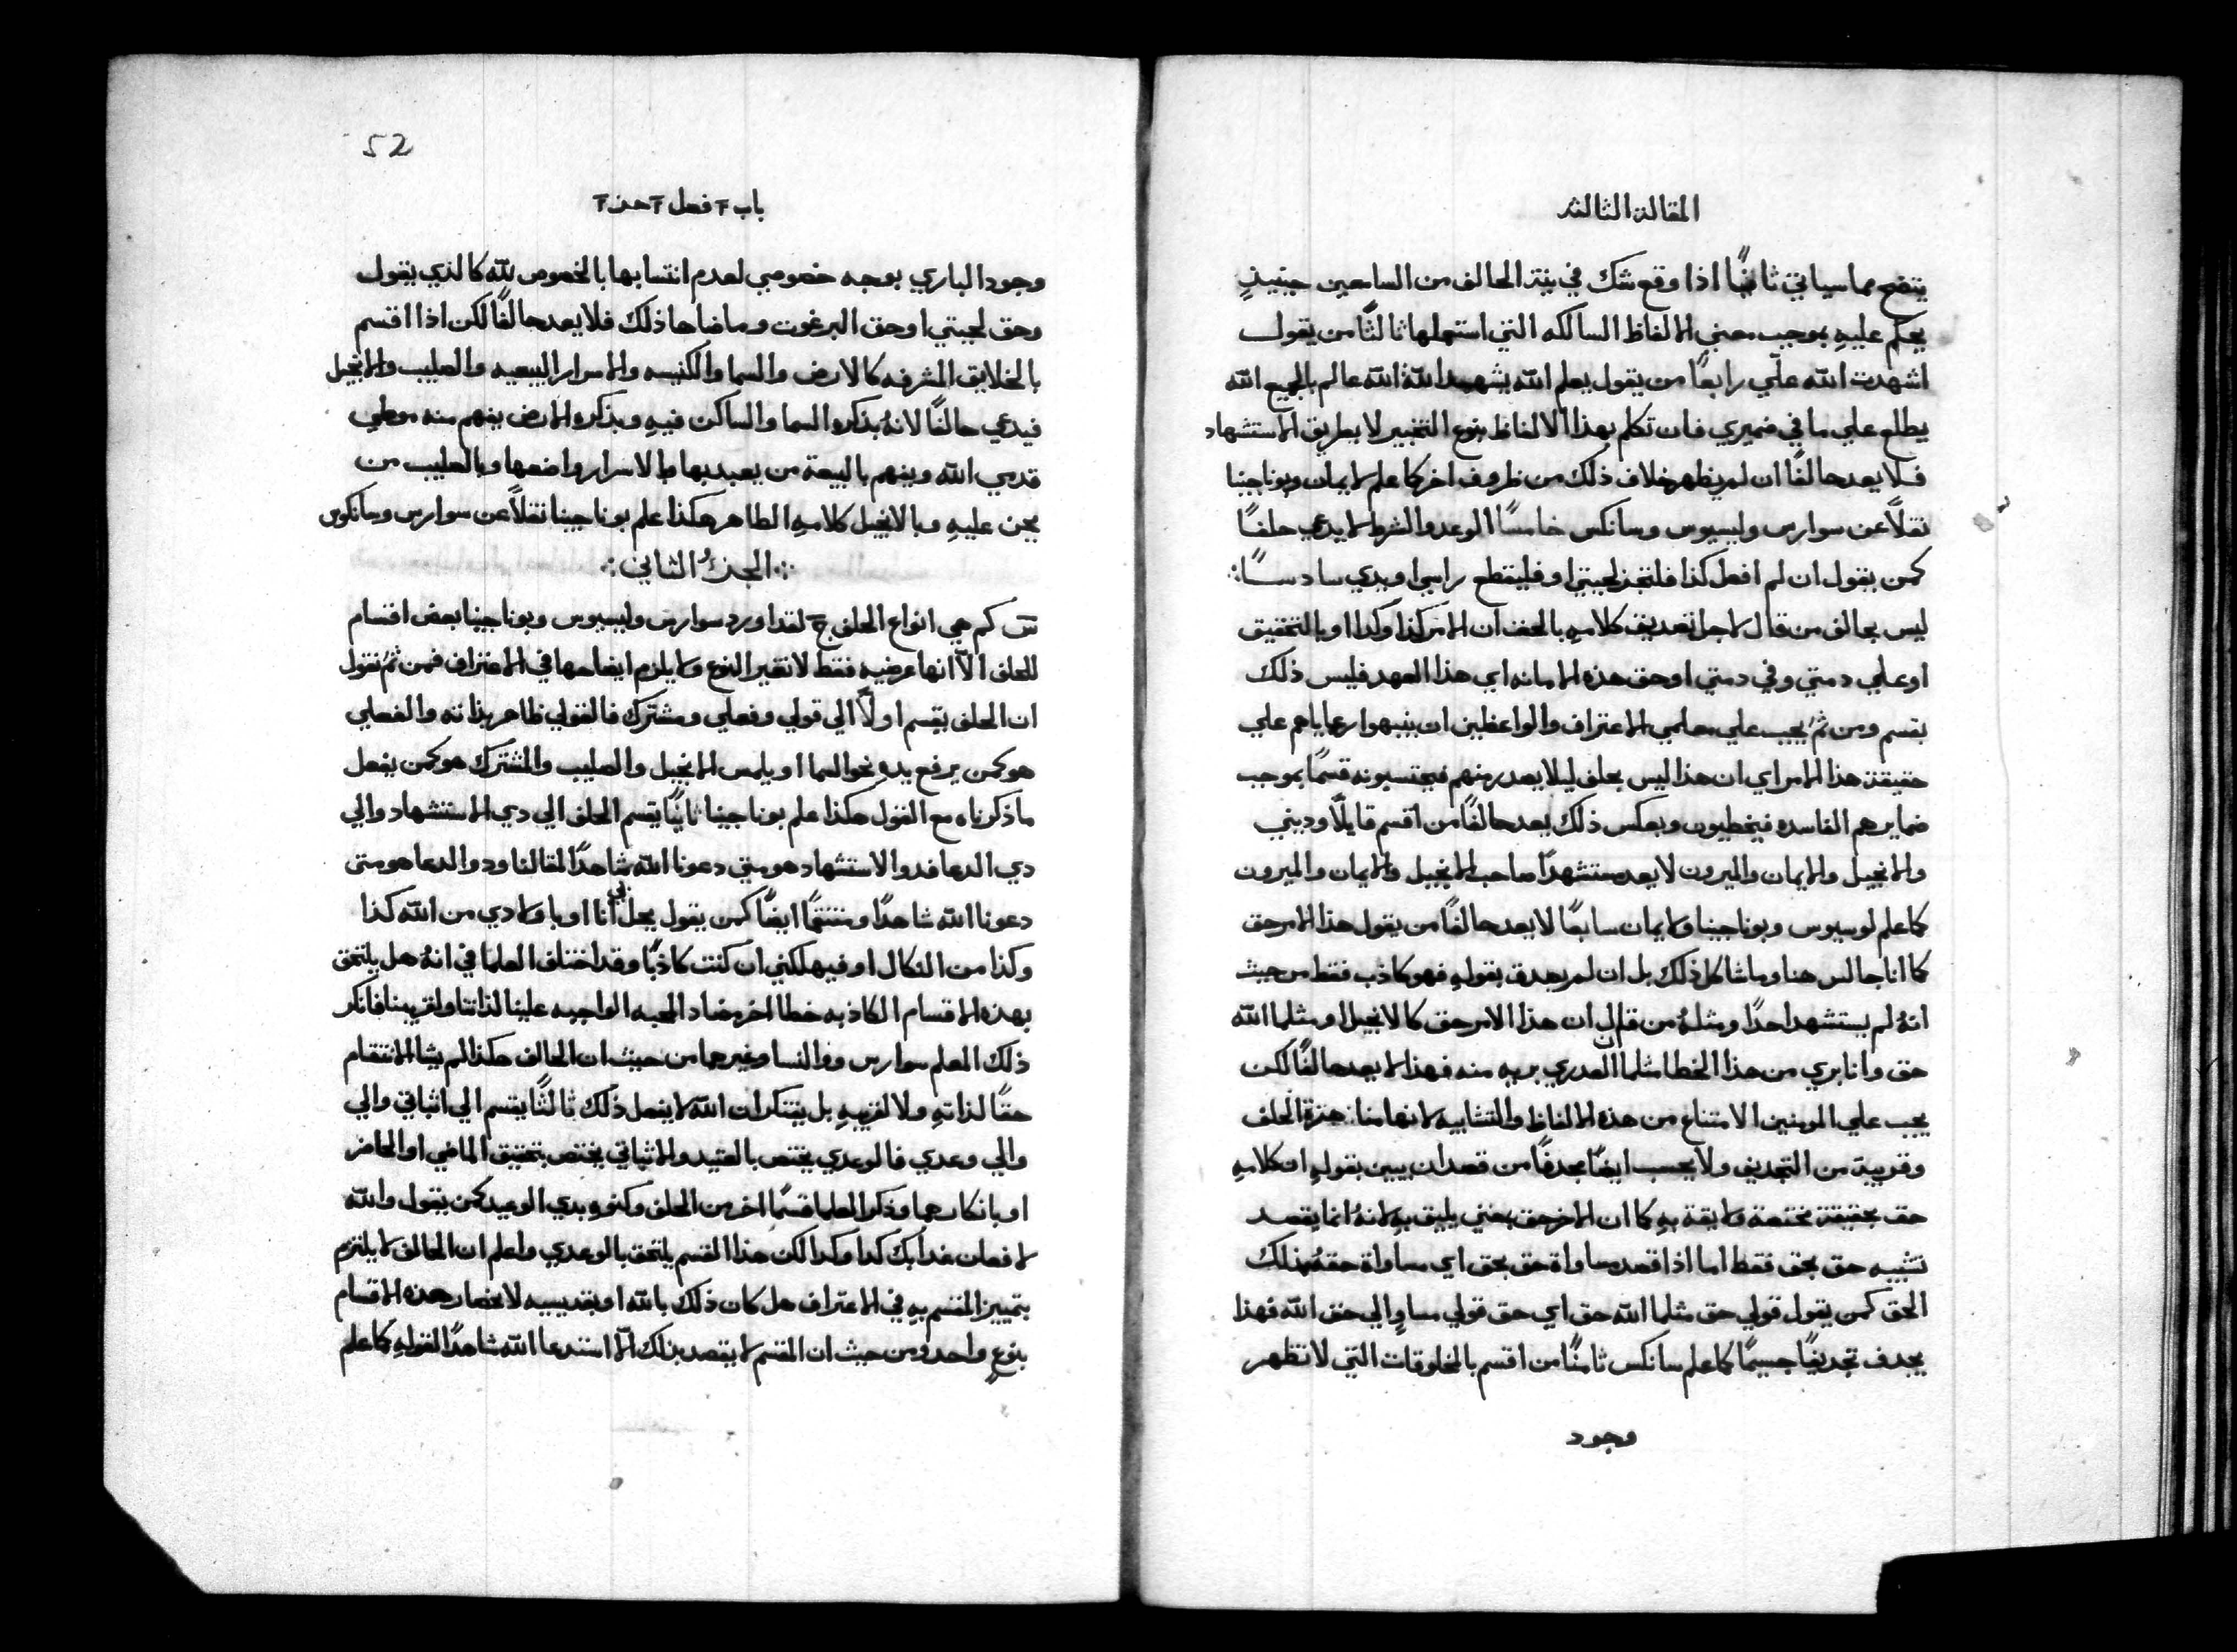 المقالة الثالثة
يتضح مما سياتي ثانيًا اذا وقع شك في نية الحالف من السامعين حينيذٍ
يحكم عليهِ بموجب معني الالفاظ السالكه التي استعملها ثالثًا من يقول
اشهدت الله علّي رابعًا من يقول يعلم الله يشهد الله الله عالم بالجميع الله
يطلع علي ما في ضميري فان تكلم بهذا الالفاظ بنوع التخبير لا بطريق الاستشهاد
فلا يعد حالفًا ان لم يظهر خلاف ذلك من ظروف اخر كما علم لايمان وبوناجينا
نقلاً عن سوارس وليسيوس وسانكس خامسًا الوعد والشرط لا يدعي حلفًا
كمن يقول ان لم افعل كذا فلتجز لحيتي او فليقطع راسي او يدي سادسًا
ليس بحالف من قال لاجل تصديق كلامهِ بالحف ان الامر كذا وكذا او بالتحقيق
او علي دمتي وفي دمتي او حق هذه الامانه اي هذا العهد فليس ذلك
بقسم ومن ثمَ يجب علي معلمي الاعتراف والواعظين ان ينبهوا رعاياهم علي
حقيقة هذا الامر اي ان هذا ليس بحلف ليلا يصدر منهم فيحتسبونه قسمًا بموجب
ضمايرهم الفاسده فيخطيون وبعكس ذلك يعد حالفًا من اقسم قايلًا وديني
والانجيل والايمان والميرون لا يعد مستشهدًا صاحب الانجيل والايمان والميرون
كما علم لوسيوس وبوناجينا ولايمان سابعًا لا يعد حالفًا من يقول هذا الامر حق
كما انا جالس هنا وما شاكل ذلك بل ان لم يصدق بقولهِ فهو كاذب فقط من حيث
انهُ لم يستشهد احدًا ومثلهُ من قال ان هذا الامر حق كالانجيل او مثلما الله
حق وانا بري من هذا الخطا مثلما ان العدري بريه منه فهذا لا يعد حالفًا لكن
يجب علي المومنين الامتناع من هذه الالفاظ والتشابيه لانها مناهزة الحلف
وقريبة من التجديف ولا يحسب ايضًا مجدفًا من قصد ان يبين بقولهِ ان كلامهِ
حق بحقيقة مختصة ولايقة بهِ كما ان الاخر حق بمعني يليق بهِ لانهُ انما يقصد
تشبيه حق بحق فقط اما اذا قصد مساواة حق بحق اي مساواة حقهُ بذلك
الحق كمن يقول قولي حق مثلما الله حق اي حق قولي مساوٍ الي حق الله فهذا
يجدف تجديفًا جسيمًا كما علم سانكس ثامنًا من اقسم بالمخلوقات التي لا تظهر
وجود
52
باب فصل جز
وجود الباري بوجه خصوصي لعدم انتسابها بالخصوص لله كالذي يقول
وحق لحيتي او حق البرغوت وما ضاها ذلك فلا يعد حالفًا لكن اذا اقسم
بالخلايق المشرفه كالارض والسما والكنيسه والاسرار البيعيه والصليب والانجيل
فيدعي حالفًا لانهُ بذكره السما والساكن فيهِ وبذكره الارض يفهم منه موطي
قدمي الله ويفهم بالبيعة من يعبد بها وبالاسرار واضعها وبالصليب من
يجن عليهِ وبالانجيل كلامهِ الطاهر هكذا علم بوناجينا نقلاً عن سوارس وسانكوس
الجزُ الثاني
س كم هي انواع الحلف ج لقد اورد سوارس وليسيوس وبوناجينا بعض اقسام
للحلف الّا انها عرضيه فقط لا تغير النوع ولا يلزم ايضاحها في الاعتراف فمن ثمُ نقول
ان الحلف يقسم اولًا الي قولي وفعلي ومشترك فالقولي ظاهر بذاته والفعلي
هو كمن يرفع يده نحو السما او يلمس الانجيل والصليب والمشترك هو كمن يفعل
ما ذكرناه مع القول هكذا علم بوناجينا ثانيًا يقسم الحلف الي دي الاستشهاد والي
دي الدعا فدو الاستشهاد هو متي دعونا الله شاهدًا لمقالنا ودو الدعا هو متي
دعونا الله شاهدًا ومنتقمًا ايضًا كمن يقول يحل بي انا او باولادي من الله كذا
وكذا من النكال او فيهلكني ان كنت كاذبًا وقد اختلف العلما في انهُ هل يلتحق
بهذه الاقسام الكاذبه خطا اخر مضاد المحبه الواجبه علينا لذاتنا ولقريبنا فانكر
ذلك المعلم سوارس ووالنسا وغيرهما من حيث ان الحالف هكذا لم يشا الانتقام
حقًا لذاتهِ ولا لقريبهِ بل يفتكر ان الله لا يفعل ذلك ثالثًا يقسم الي اثباتي والي
والي وعدي فالوعدي يختص بالعتيد والاثباتي يختص بتحقيق الماضي او الحاضر
او بانكارهما وذكر العلما قسمًا اخر من الحلف وكنوه بدي الوعيد كمن يقول والله
لافعلن غدا بك كدا وكدا لكن هذا القسم يلتحق بالوعدي واعلم ان الحالف لا يلتزم
بتمييز المقسم بهِ في الاعتراف هل كان ذلك بالله او بقديسيه لانحصار هذه الاقسام
بنوعٍ واحد ومن حيث ان المقسم لا يقصد بذلك الّا استدعا الله شاهدًا لقولهِ كما علم